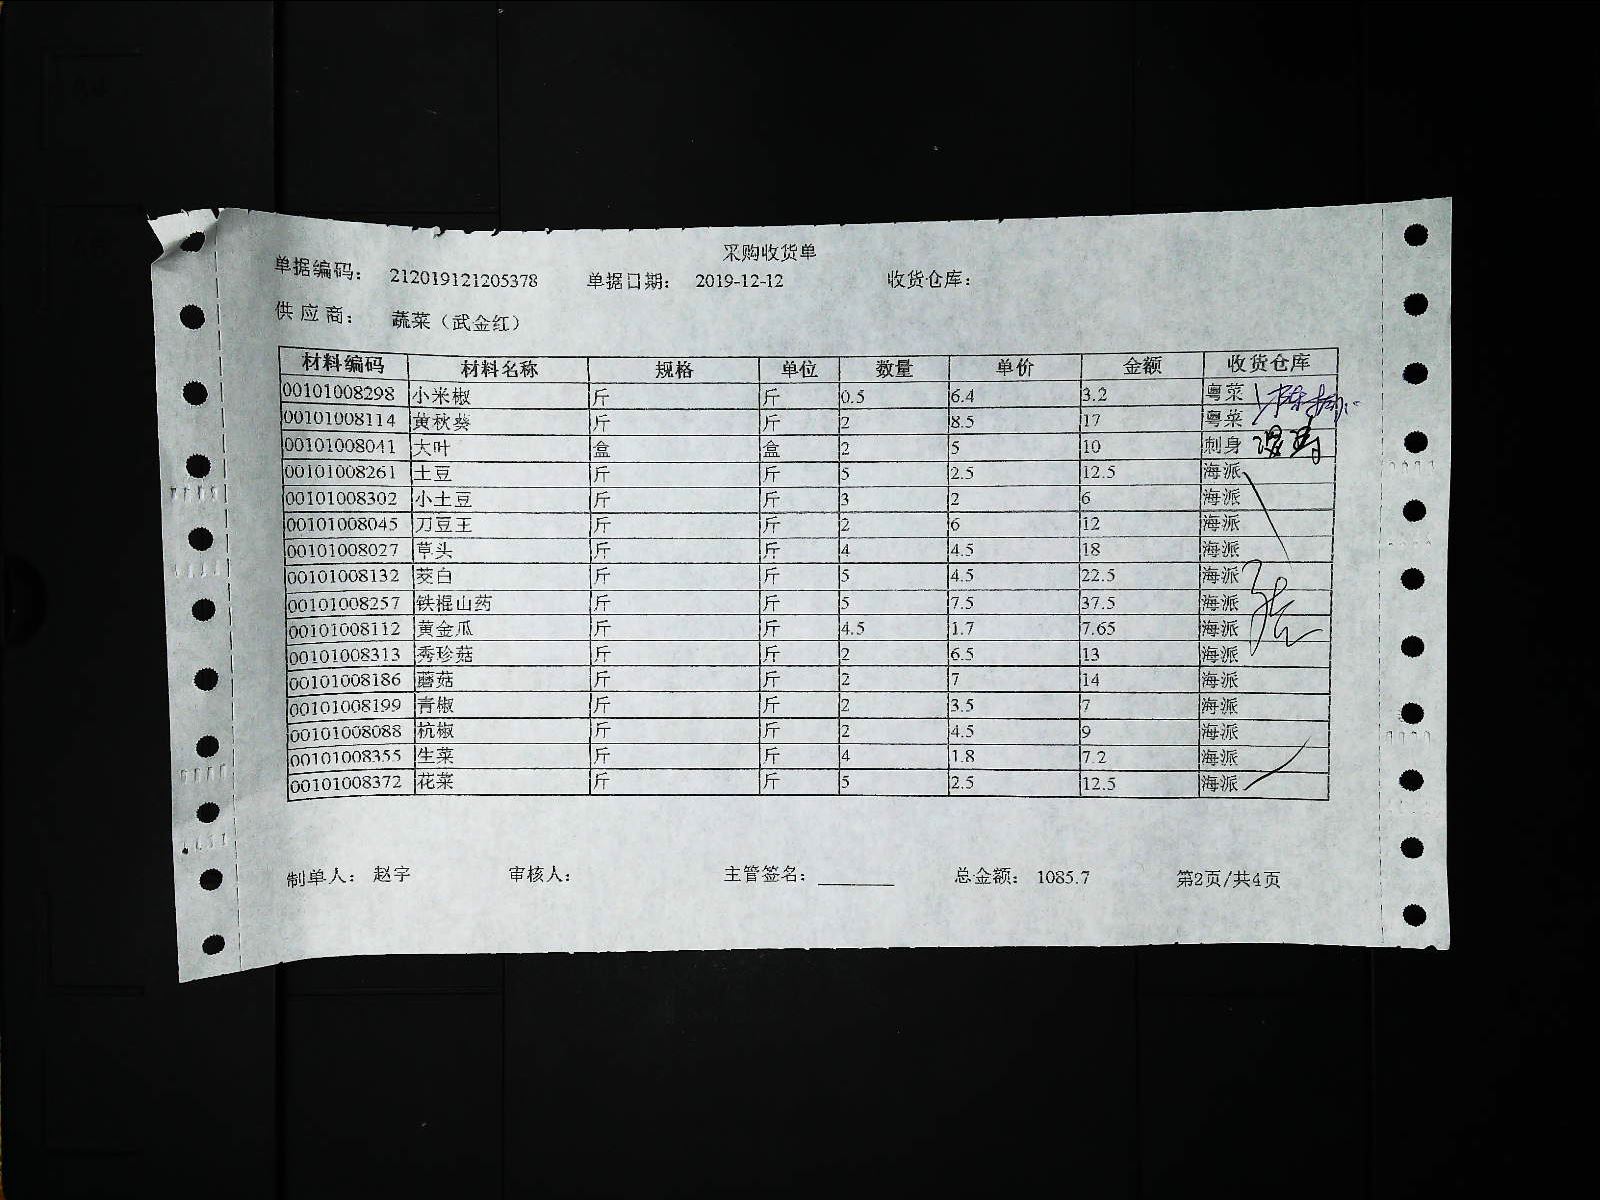 采购收货单
单据编码： 212019121205378 单据日期： 2019-12-12 收货仓库：
供应商： 蔬菜（武金红）
材料编码 材料名称 规格 单位 数量 单价 金额 收货仓库
00101008298 小米椒 斤 斤 0.5 6.4 3.2 粤菜
00101008114 黄秋葵 斤 斤 2 8.5 17 粤菜
00101008041 大叶 盒 盒 2 5 10 刺身
00101008261 土豆 斤 斤 5 2.5 12.5 海派
00101008302 小土豆 斤 斤 3 2 6 海派
00101008045 刀豆王 斤 斤 2 6 12 海派
00101008027 草头 斤 斤 4 4.5 18 海派
00101008132 茭白 斤 斤 5 4.5 22.5 海派
00101008257 铁棍山药 斤 斤 5 7.5 37.5 海派
00101008112 黄金瓜 斤 斤 4.5 1.7 7.65 海派
00101008313 秀珍菇 斤 斤 2 6.5 13 海派
00101008186 蘑菇 斤 斤 2 7 14 海派
00101008199 青椒 斤 斤 2 3.5 7 海派
00101008088 杭椒 斤 斤 2 4.5 9 海派
00101008355 生菜 斤 斤 4 1.8 7.2 海派
00101008372 花菜 斤 斤 5 2.5 12.5 海派
制单人： 赵宇 审核人： 主管签名： 总金额： 1085.7 第2页/共4页